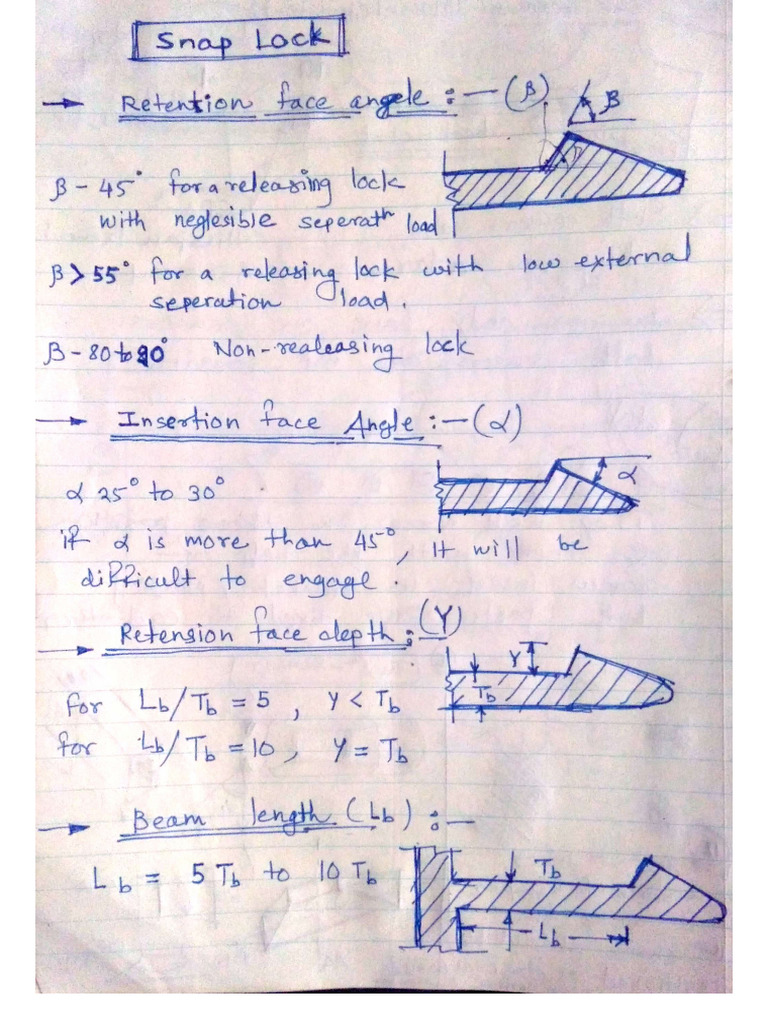 Snap Lock
→ Retention face angele :- (β)
β
β - 45° for a releasing lock
with neglesible seperatn load
β > 55° for a releasing lock with low external
seperation load.
β - 80 to 90° Non-realeasing lock
→ Insertion face Angle :- (α)
α
α 25° to 30°
if α is more than 45°, it will be
difficult to engage.
→ Retension face depth :- (Y)
Y
Tb
for Lb/Tb = 5, Y < Tb
for Lb/Tb = 10, Y = Tb
→ Beam length (Lb) :-
Lb = 5 Tb to 10 Tb
Tb
Lb